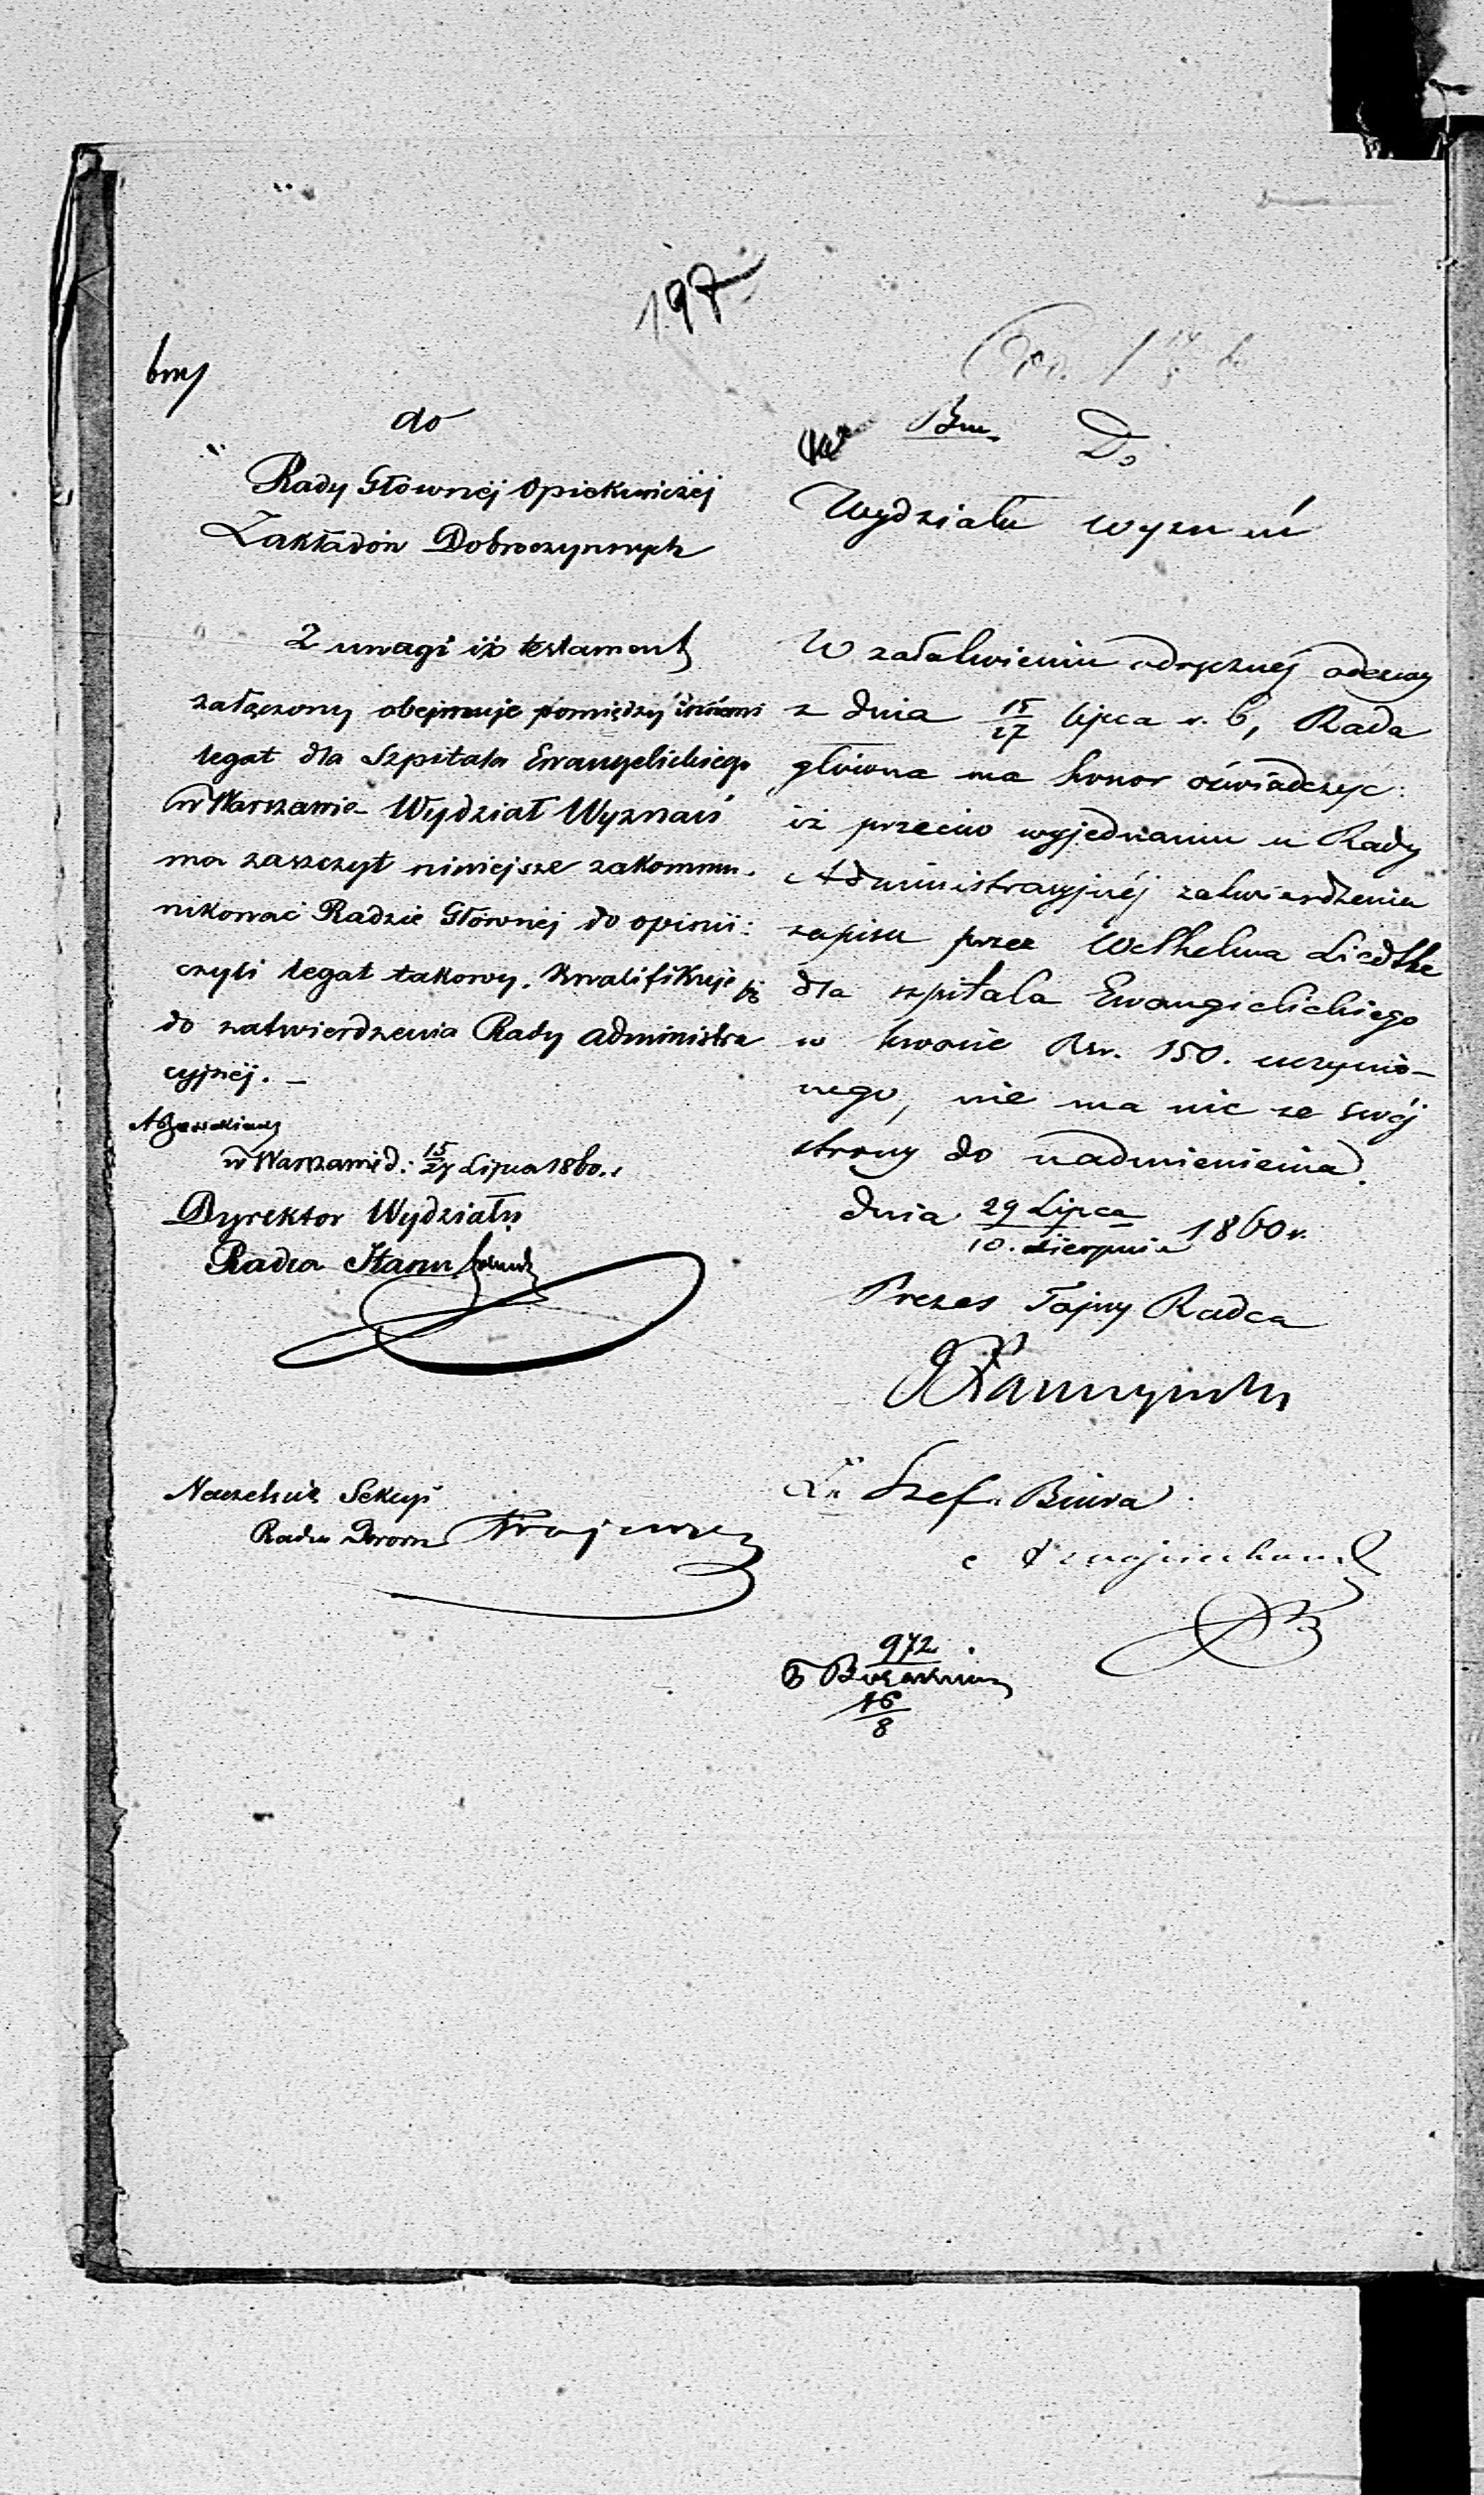 197
bny
do
Rady Głównej Opiekuńczej
Zakładów Dobroczynnych
Z uwagi iż testament
załączony obejmuje pomiędzy innemi
legat dla Szpitala Ewangelickiego
w Warszawie Wydział Wyznań
ma zaszczyt niniejsze zakommu-
nikować Radzie Głównej do opinii:
czyli legat takowy kwalifikuje się
do zatwierdzenia Rady Administra
cyjnej. –
w Warszawie d: 15/27 Lipca 1860.
Dyrektor Wydziału
Radca Stanu
Naczelnik Sekcyi
Radca Dworu
Do
Wydziału Wyznań
W załatwieniu odręcznej odezwy
z dnia 15/27 lipca r. b, Rada
główna ma honor oświadczyć:
iż przeciw wyjednaniu u Rady
Administracyjnéj zatwierdzenia
zapisu przez Wilhelma Liedtke
dla szpitala Ewangielickiego
w kwocie Rsr. 150. uczynio-
nego, nie ma nic ze swéj
strony do nadmienienia.
dnia 29 Lipca/10. Sierpnia 1860 r.
Prezes Tajny Radca
Szef Biura
972
16/8